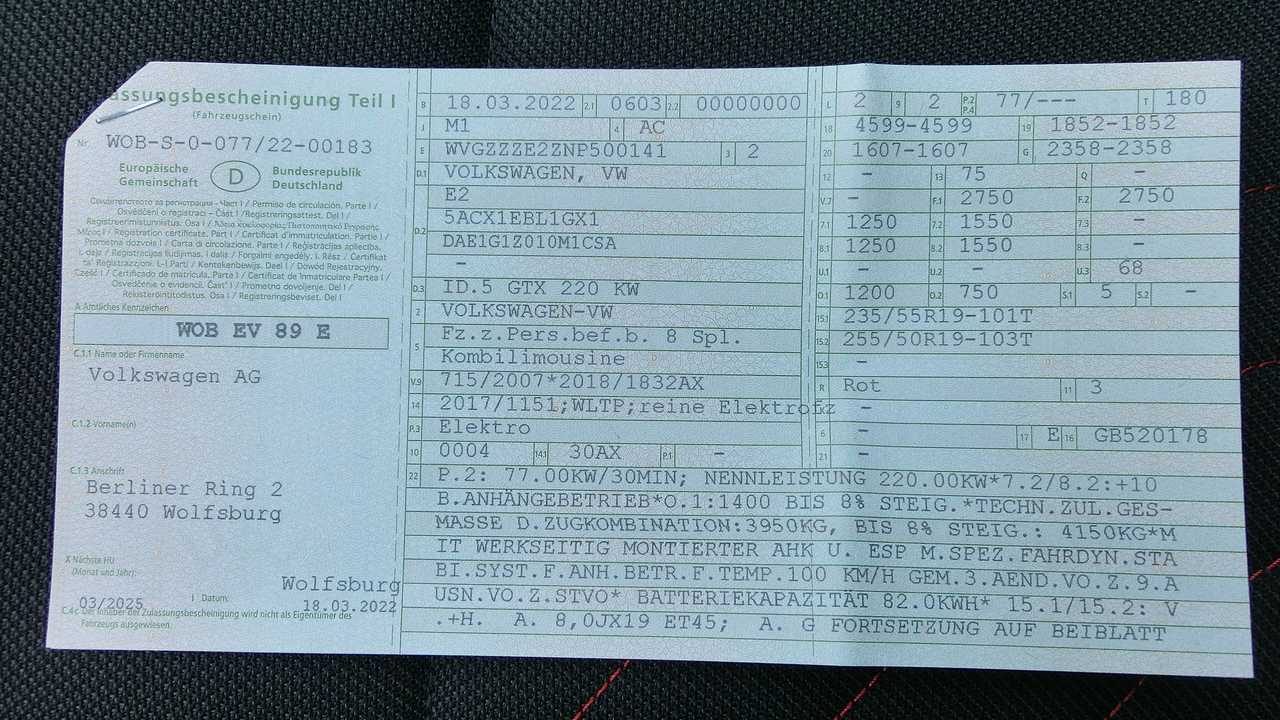 assungsbescheinigung Teil I
(Fahrzeugschein)
Nr. WOB-S-0-077/22-00183
Europäische Gemeinschaft
D
Bundesrepublik Deutschland
Свидетелство за регистрация - Част I / Permiso de circulación. Parte I /
Osvědčení o registraci – Část I / Registreringsattest. Del I /
Registreerimistunnistus. Osa I / Άδεια κυκλοφορίας
I / Registration certificate. Part I / Certificat d'immatriculation. Partie I /
Prometna dozvola I / Carta di circolazione. Parte I / Reģistrācijas apliecība.
I. daļa / Registracijos liudijimas. I dalis / Forgalmi engedély. I. Rész / Ċertifikat
ta' Reġistrazzjoni. L-I Parti / Kentekenbewijs. Deel I / Dowód Rejestracyjny.
Część I / Certificado de matrícula. Parte I / Certificat de înmatriculare Partea I /
Osvedčenie o evidencii. Časť I / Prometno dovoljenje. Del I /
Rekisteröintitodistus. Osa I / Registreringsbeviset. Del I
A Amtliches Kennzeichen
WOB EV 89 E
C.1.1 Name oder Firmenname
Volkswagen AG
C.1.2 Vorname(n)
C.1.3 Anschrift
Berliner Ring 2
38440 Wolfsburg
X Nächste HU
(Monat und Jahr)
Wolfsburg
03/2025 I Datum: 18.03.2022
C.4c Der Inhaber der Zulassungsbescheinigung wird nicht als Eigentümer des
Fahrzeugs ausgewiesen.
B 18.03.2022 2.1 0603 2.2 00000000
J M1 4 AC
E WVGZZZE2ZNP500141 3 2
D.1 VOLKSWAGEN, VW
E2
D.2 5ACX1EBL1GX1
DAE1G1Z010M1CSA
–
D.3 ID.5 GTX 220 KW
2 VOLKSWAGEN-VW
5 Fz.z.Pers.bef.b. 8 Spl.
Kombilimousine
V.9 715/2007*2018/1832AX
14 2017/1151;WLTP;reine Elektrofz
P.3 Elektro
10 0004 14.1 30AX P.1 –
L 2 9 2 P.2 P.4 77/--- T 180
18 4599-4599 19 1852-1852
20 1607-1607 G 2358-2358
12 – 13 75 Q –
V.7 – F.1 2750 F.2 2750
7.1 1250 7.2 1550 7.3 –
8.1 1250 8.2 1550 8.3 –
U.1 – U.2 – U.3 68
O.1 1200 O.2 750 S.1 5 S.2 –
15.1 235/55R19-101T
15.2 255/50R19-103T
15.3 –
R Rot 11 3
–
6 – 17 E 16 GB520178
21 –
22 P.2: 77.00KW/30MIN; NENNLEISTUNG 220.00KW*7.2/8.2:+10
B.ANHÄNGEBETRIEB*O.1:1400 BIS 8% STEIG.*TECHN.ZUL.GES-
MASSE D.ZUGKOMBINATION:3950KG, BIS 8% STEIG.: 4150KG*M
IT WERKSEITIG MONTIERTER AHK U. ESP M.SPEZ.FAHRDYN.STA
BI.SYST.F.ANH.BETR.F.TEMP.100 KM/H GEM.3.AEND.VO.Z.9.A
USN.VO.Z.STVO* BATTERIEKAPAZITÄT 82.0KWH* 15.1/15.2: V
.+H. A. 8,0JX19 ET45; A. G FORTSETZUNG AUF BEIBLATT